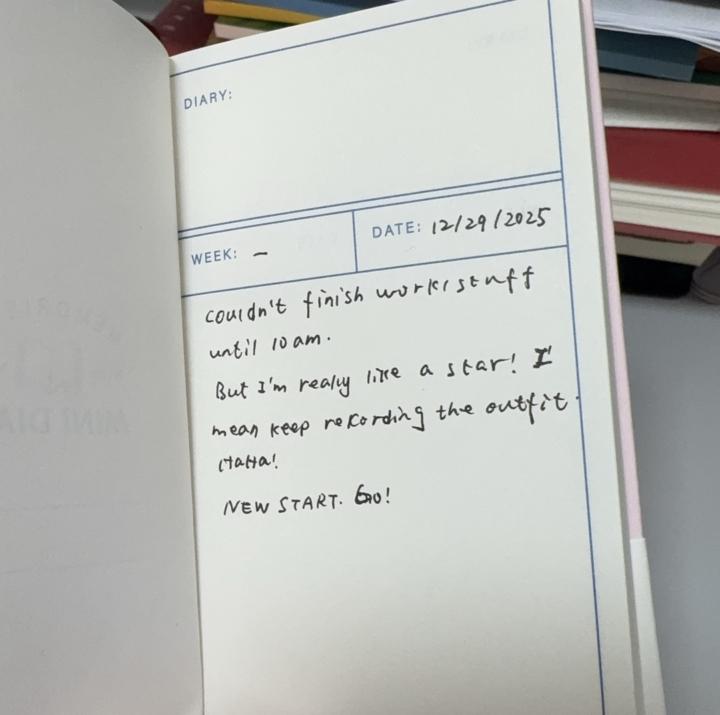 DIARY:
WEEK: –
DATE: 12/29/2025
couldn't finish work stuff
until 10 am.
But I'm really like a star! I
mean keep recording the outfit.
HaHa!
NEW START. GO!